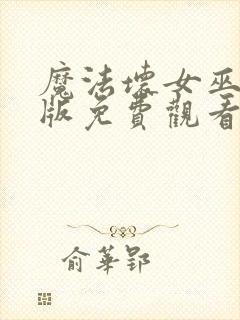 魔法壞女巫
版免費觀看
俞華郢